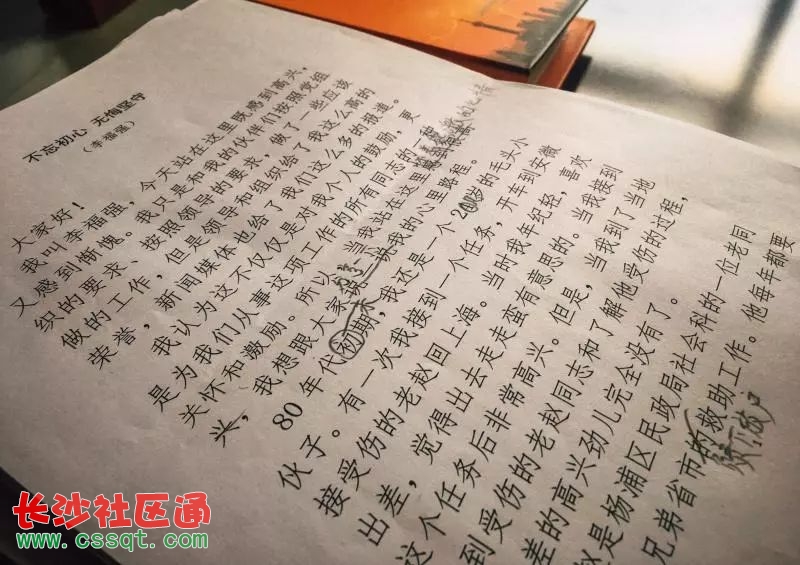 不忘初心 无悔坚守
（李福强）
大家好！
我叫李福强，今天站在这里既感到高兴，
又感到惭愧。我只是和我的伙伴们按照党组
织的要求、按照领导的要求，做了一些应该
做的工作，但是领导和组织给了我这么高的
荣誉，新闻媒体也给了我们这么多的报道。
我认为这不仅仅是对我个人的鼓励，更
是为我们从事这项工作的所有同志的一种
关怀和激励。所以，当我站在这里
兴，我想跟大家说一说我的心里路程。
80 年代初期末，我还是一个 20岁的毛头小
伙子。有一次我接到一个任务，开车到安徽
接受伤的老赵回上海。当时我年纪轻，喜欢
出差，觉得出去走走蛮有意思的。当我接到
这个任务后非常高兴。但是，当我到了当地
到受伤的老赵同志和了解他受伤的过程，
差的高兴劲儿完全没有了。
赵是杨浦区民政局社会科的一位老同
兄弟省市的救助工作。他每年都要
长沙社区通
www.cssqt.com